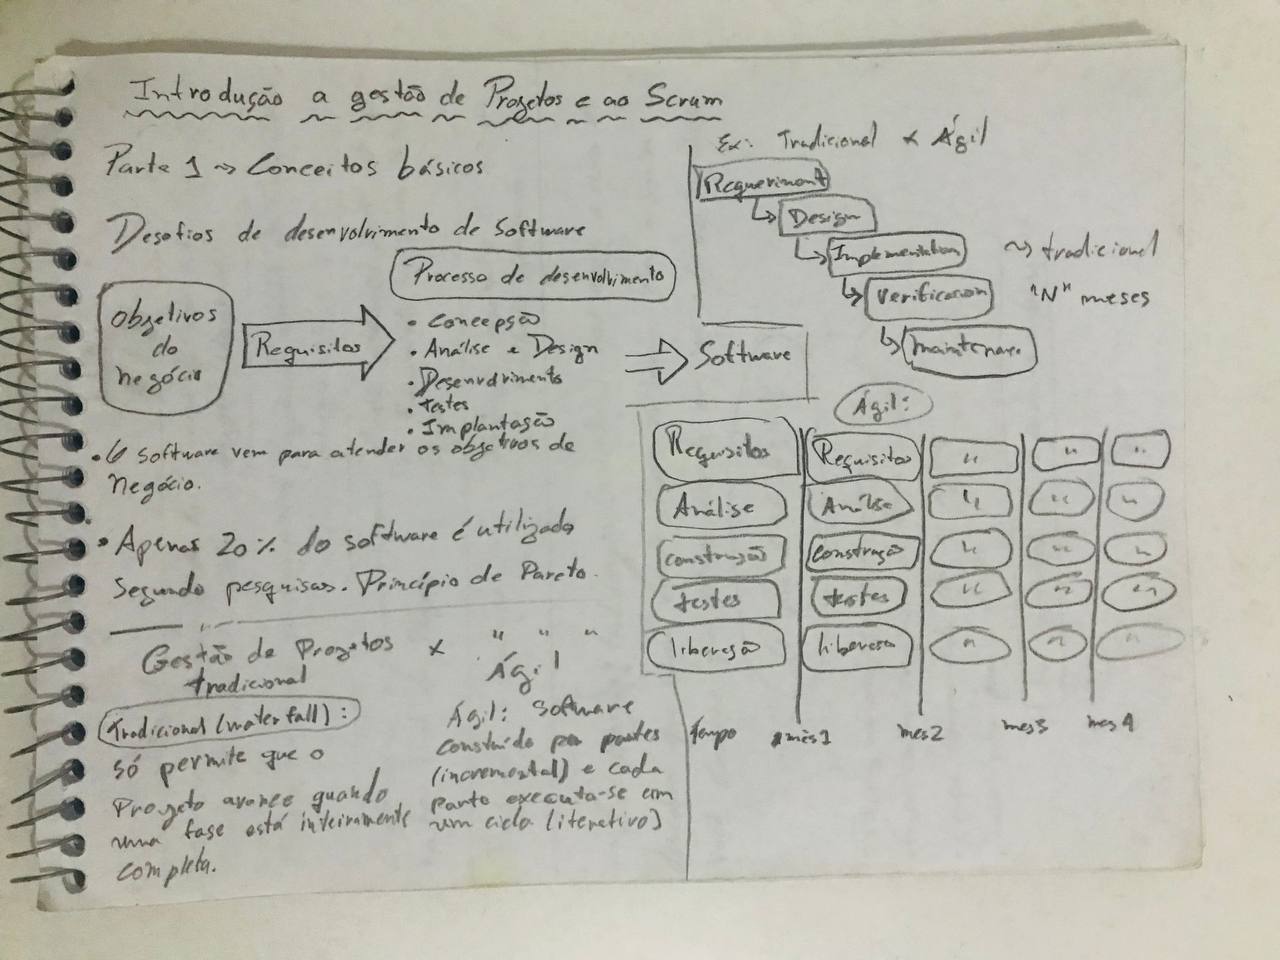 Introdução a gestão de Projetos e ao Scrum
Parte 1 ~> Conceitos básicos
Desafios de desenvolvimento de Software
Objetivos
do
negócio
Requisitos
Processo de desenvolvimento
• Concepção
• Análise e Design
• Desenvolvimento
• Testes
• Implantação
Software
• O software vem para atender os objetivos de
negócio.
• Apenas 20% do software é utilizado
segundo pesquisas. Princípio de Pareto.
Gestão de Projetos x " " "
tradicional Ágil
Tradicional (waterfall):
só permite que o
Projeto avance quando
uma fase está inteiramente
completa.
Ágil: Software
construído por partes
(incremental) e cada
parte executa-se em
um ciclo (iterativo)
Ex: Tradicional x Ágil
Requeriment
Design
Implementation
Verificacion
maintenan.
~> tradicional
"N" meses
Ágil:
Requisitos Requisitos " " "
Análise Análise " " "
construção construção " " "
testes testes " " "
liberação liberação " " "
tempo mês1 mes2 mes3 mes4